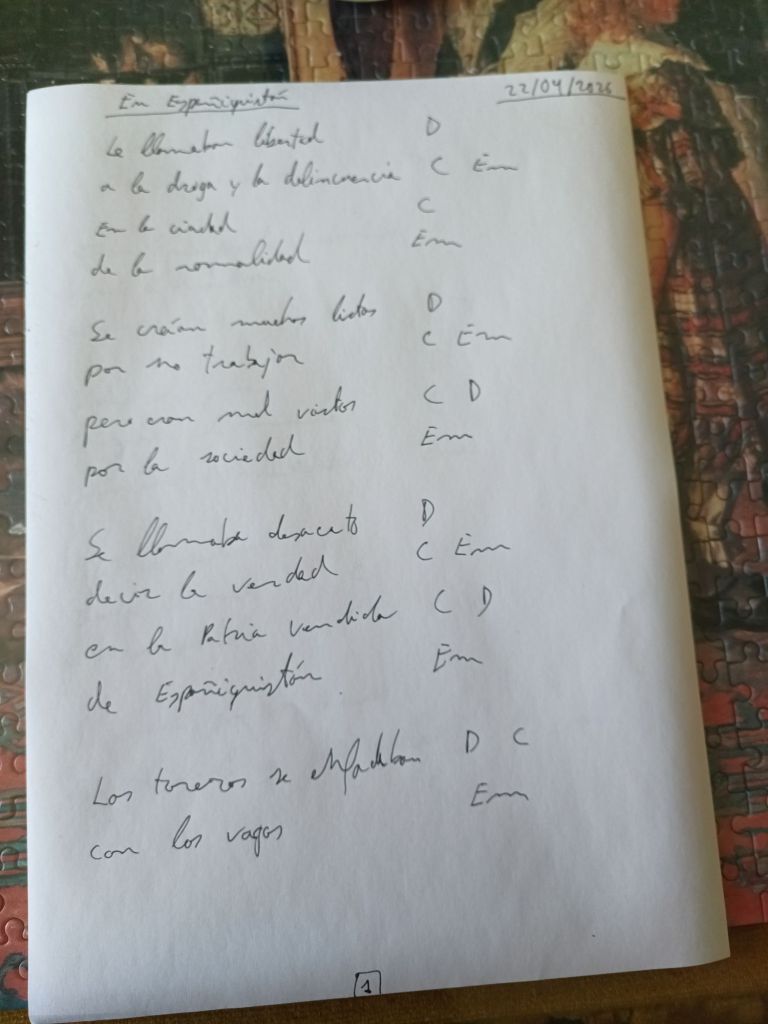 En Españiquistán 22/04/2026
Le llamaban libertad D
a la droga y la delincuencia C Em
En la ciudad C
de la normalidad Em
Se creían muchos listos D
por no trabajar C Em
pero eran mal vistos C D
por la sociedad Em
Se llamaba desacato D
decir la verdad C Em
en la Patria vendida C D
de Españiquistán Em
Los toreros se enfadaban D C
con los vagos Em
1